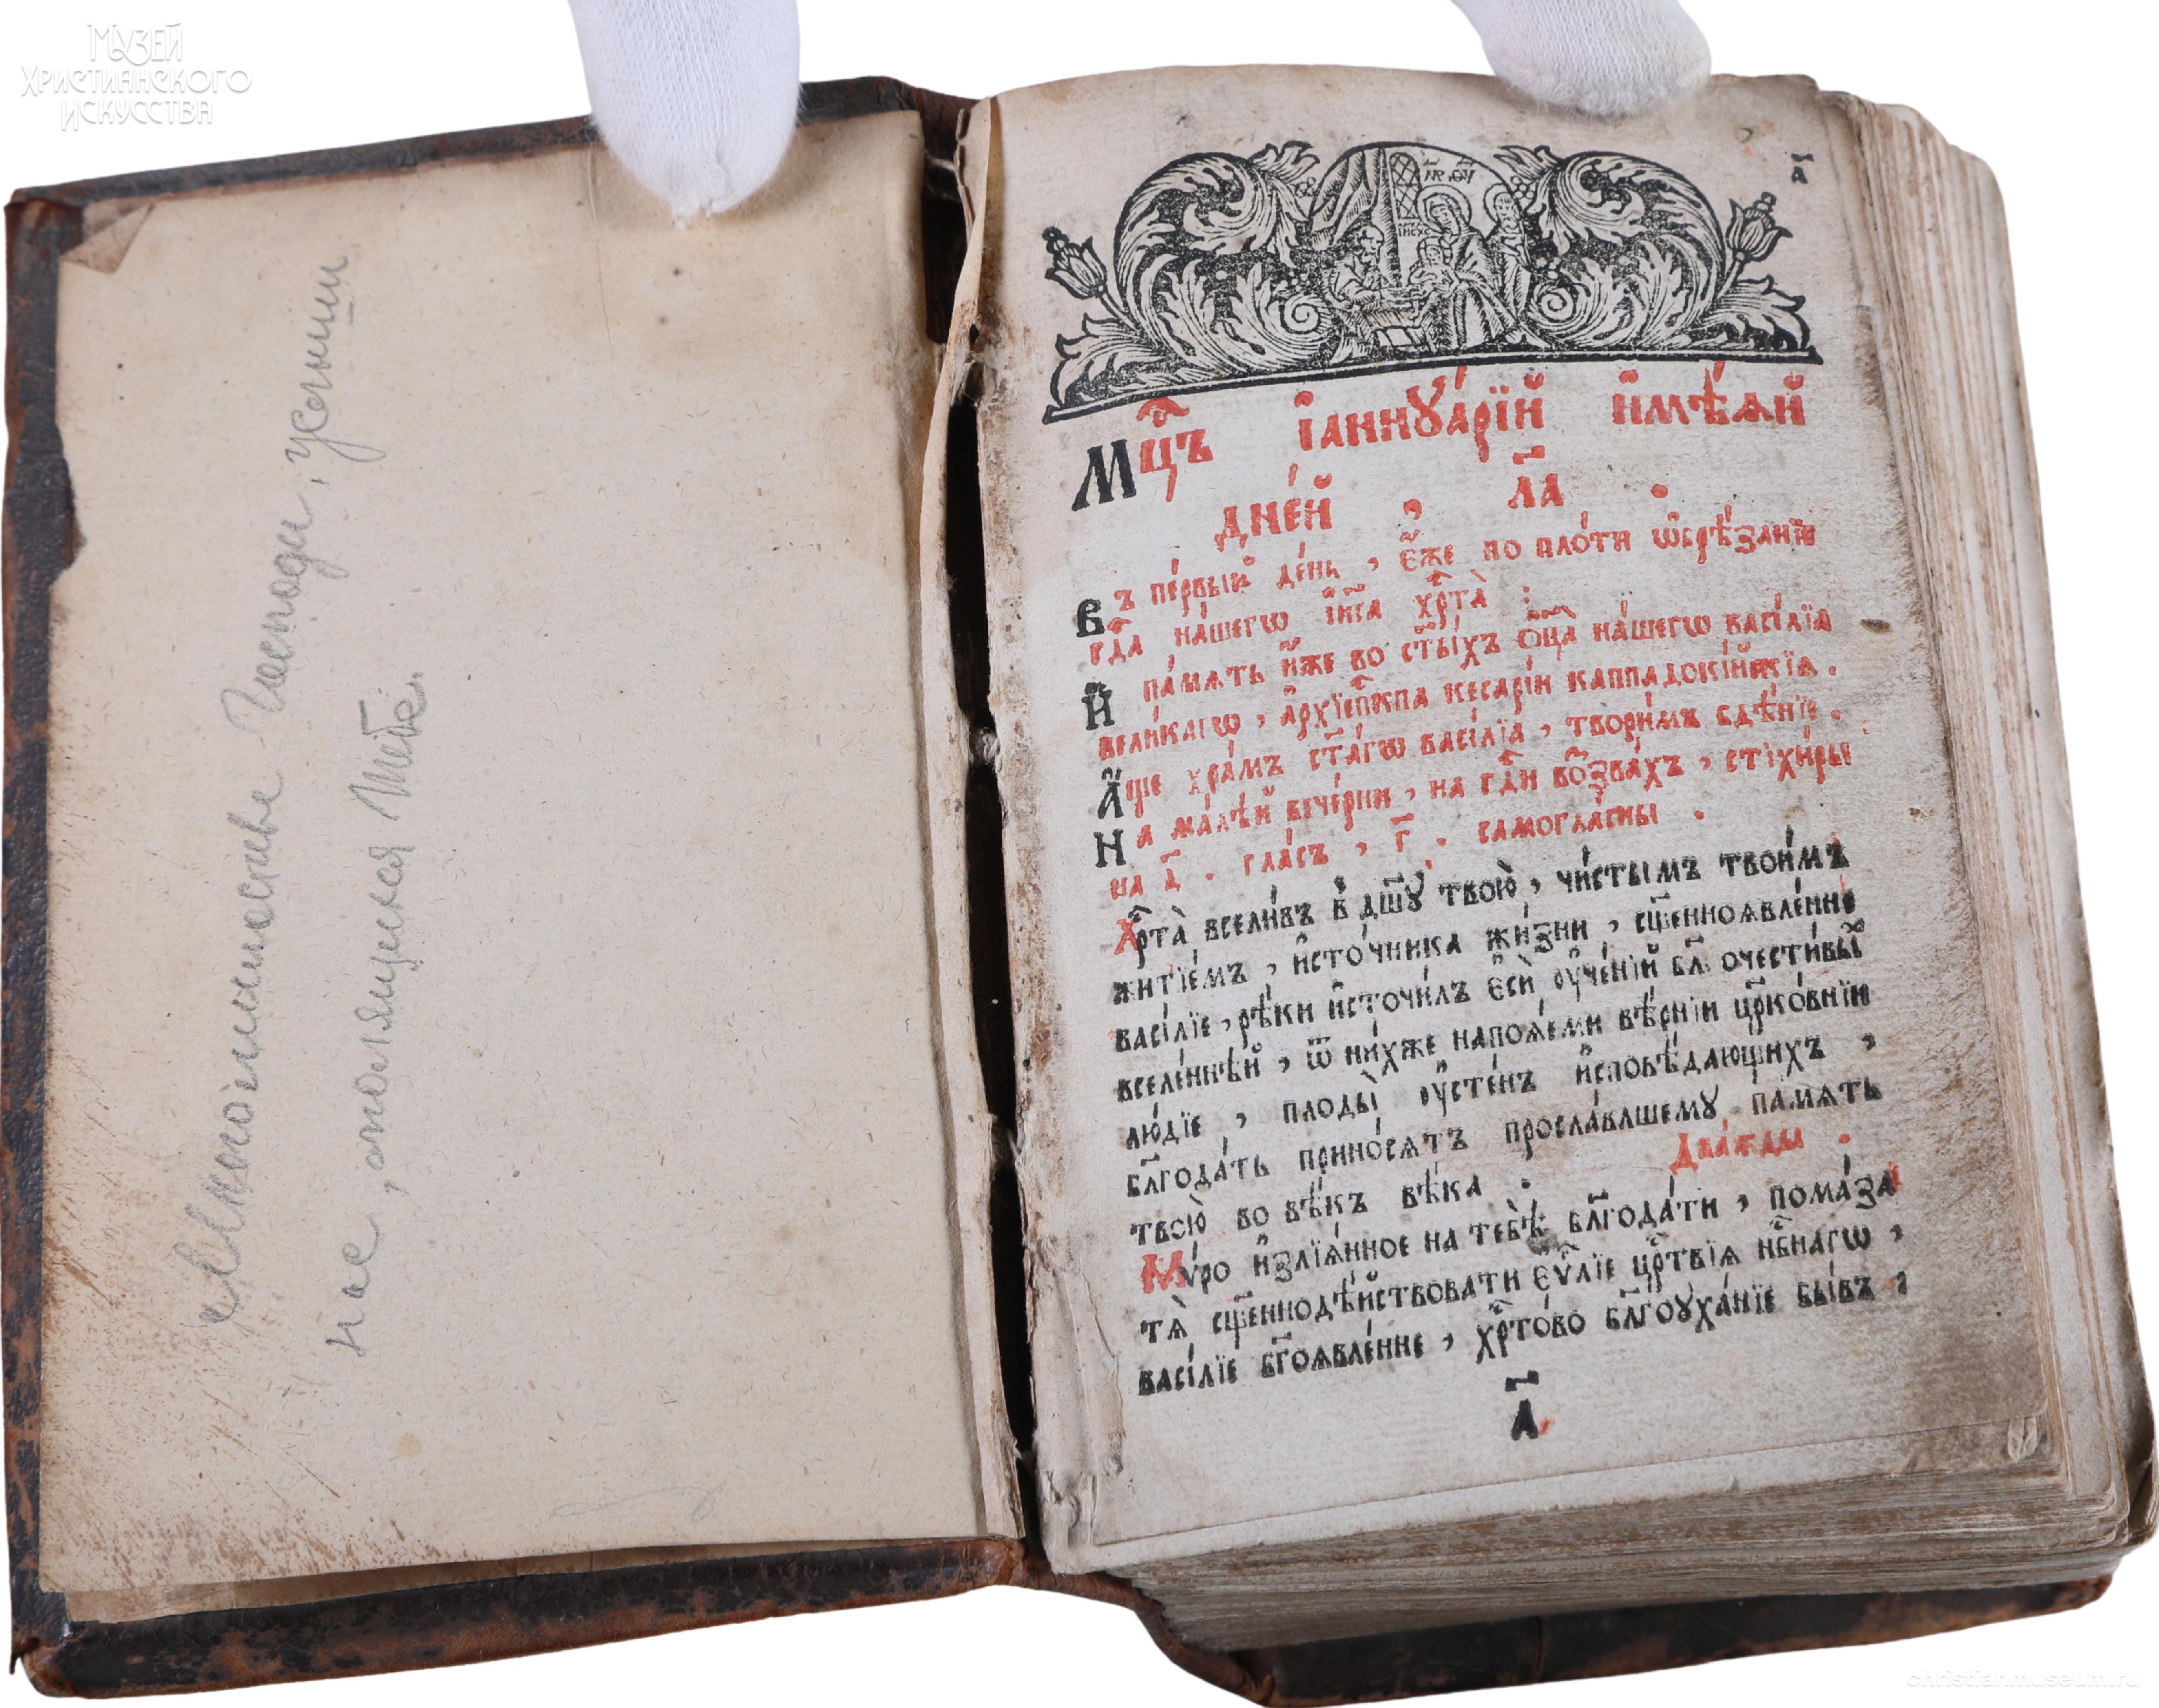 Музей
Христианского
Искусства
Многомилостиве Господи, услыши
нас, молящихся Тебе.
МР ѲУ
ІИСХС
а҃
Мц҃ъ і҆аннꙋа́рїй и҆мѣ́ѧй
дне́й , л҃а .
Въ пе́рвый де́нь , є҆́же по пло́ти ѡ҆брѣ́занїе
гд҇а на́шегѡ і҆и҃са хр҇та̀ :
И҆ па́мѧть и҆́же во ст҃ы́хъ ѻ҆ц҃а̀ на́шегѡ васі́лїа
вели́кагѡ , а҆рхїеп҇кпа кесарі́и каппадокі́йскїѧ .
А҆́ще хра́мъ ст҃а́гѡ васі́лїа , твори́мъ бдѣ́нїе .
На ма́лѣй вече́рни , на гд҇и возва́хъ , стїхи́ры
на д҃ . гла́съ , г҃ . самогла́сны .
Хр҇та̀ всели́въ в̾ дш҃ꙋ твою̀ , чи́стымъ твои́мъ
житїе́мъ , и҆сто́чника жи́зни , сщ҃енноѧвле́нне
васі́лїе , рѣ́ки и҆сточи́лъ є҆сѝ ᲂу҆че́нїй бл҃гочести́выѧ
вселе́ннѣй , ѿ ни́хже напоѧ́еми вѣ́рнїи цр҃ко́внїи
лю́дїе , плоды̀ ᲂу҆сте́нъ и҆сповѣ́дающихъ ,
бл҃года́ть прино́сѧтъ просла́вльшемꙋ па́мѧть
твою̀ во вѣ́къ вѣ́ка . Два́жды .
Мѵ́ро и҆злїѧ́нное на тебѣ̀ бл҃года́ти , пома́за
тѧ̀ сщ҃еннодѣ́йствовати є҆ѵ҇лїе цр҇твїѧ нб҇нагѡ ,
васі́лїе бг҃оѧвле́нне , хр҇то́во бл҃гоꙋха́нїе бы́въ ,
а҃
christianmuseum.ru